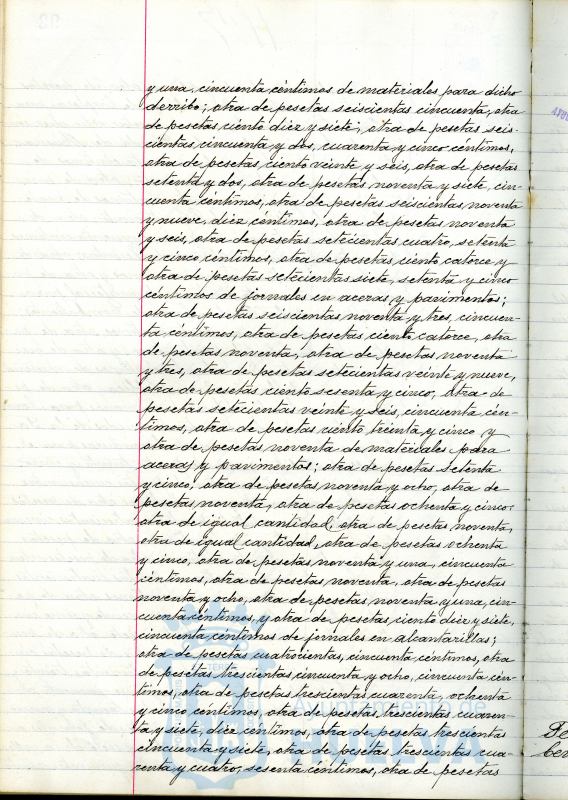 y una, cincuenta céntimos de materiales para dicho
derribo; otra de pesetas seiscientas cincuenta, otra
de pesetas ciento diez y siete, otra de pesetas seis-
cientas cincuenta y dos, cuarenta y cinco céntimos,
otra de pesetas ciento veinte y seis, otra de pesetas
setenta y dos, otra de pesetas noventa y siete, cin-
cuenta céntimos, otra de pesetas seiscientas noventa
y nueve, diez céntimos, otra de pesetas noventa
y seis, otra de pesetas setecientas cuatro, setenta
y cinco céntimos, otra de pesetas ciento catorce y
otra de pesetas setecientas siete, setenta y cinco
céntimos de jornales en aceras y pavimentos;
otra de pesetas seiscientas noventa y tres, cincuen-
ta céntimos, otra de pesetas ciento catorce, otra
de pesetas noventa, otra de pesetas noventa
y tres, otra de pesetas setecientas veinte y nueve,
otra de pesetas ciento sesenta y cinco, otra de
pesetas setecientas veinte y seis, cincuenta cén-
timos, otra de pesetas ciento treinta y cinco y
otra de pesetas noventa de materiales para
aceras y pavimentos; otra de pesetas setenta
y cinco, otra de pesetas noventa y ocho, otra de
pesetas noventa, otra de pesetas ochenta y cinco,
otra de igual cantidad, otra de pesetas noventa,
otra de igual cantidad, otra de pesetas ochenta
y cinco, otra de pesetas noventa y una, cincuenta
céntimos, otra de pesetas noventa, otra de pesetas
noventa y ocho, otra de pesetas noventa y una, cin-
cuenta céntimos, y otra de pesetas ciento diez y siete,
cincuenta céntimos de jornales en alcantarillas;
otra de pesetas cuatrocientas, cincuenta céntimos, otra
de pesetas trescientas cincuenta y ocho, cincuenta cén-
timos, otra de pesetas trescientas cuarenta, ochenta
y cinco céntimos, otra de pesetas trescientas cuaren-
ta y siete, diez céntimos, otra de pesetas trescientas
cincuenta y siete, otra de pesetas trescientas cua-
renta y cuatro, sesenta céntimos, otra de pesetas
Ayuntamiento de